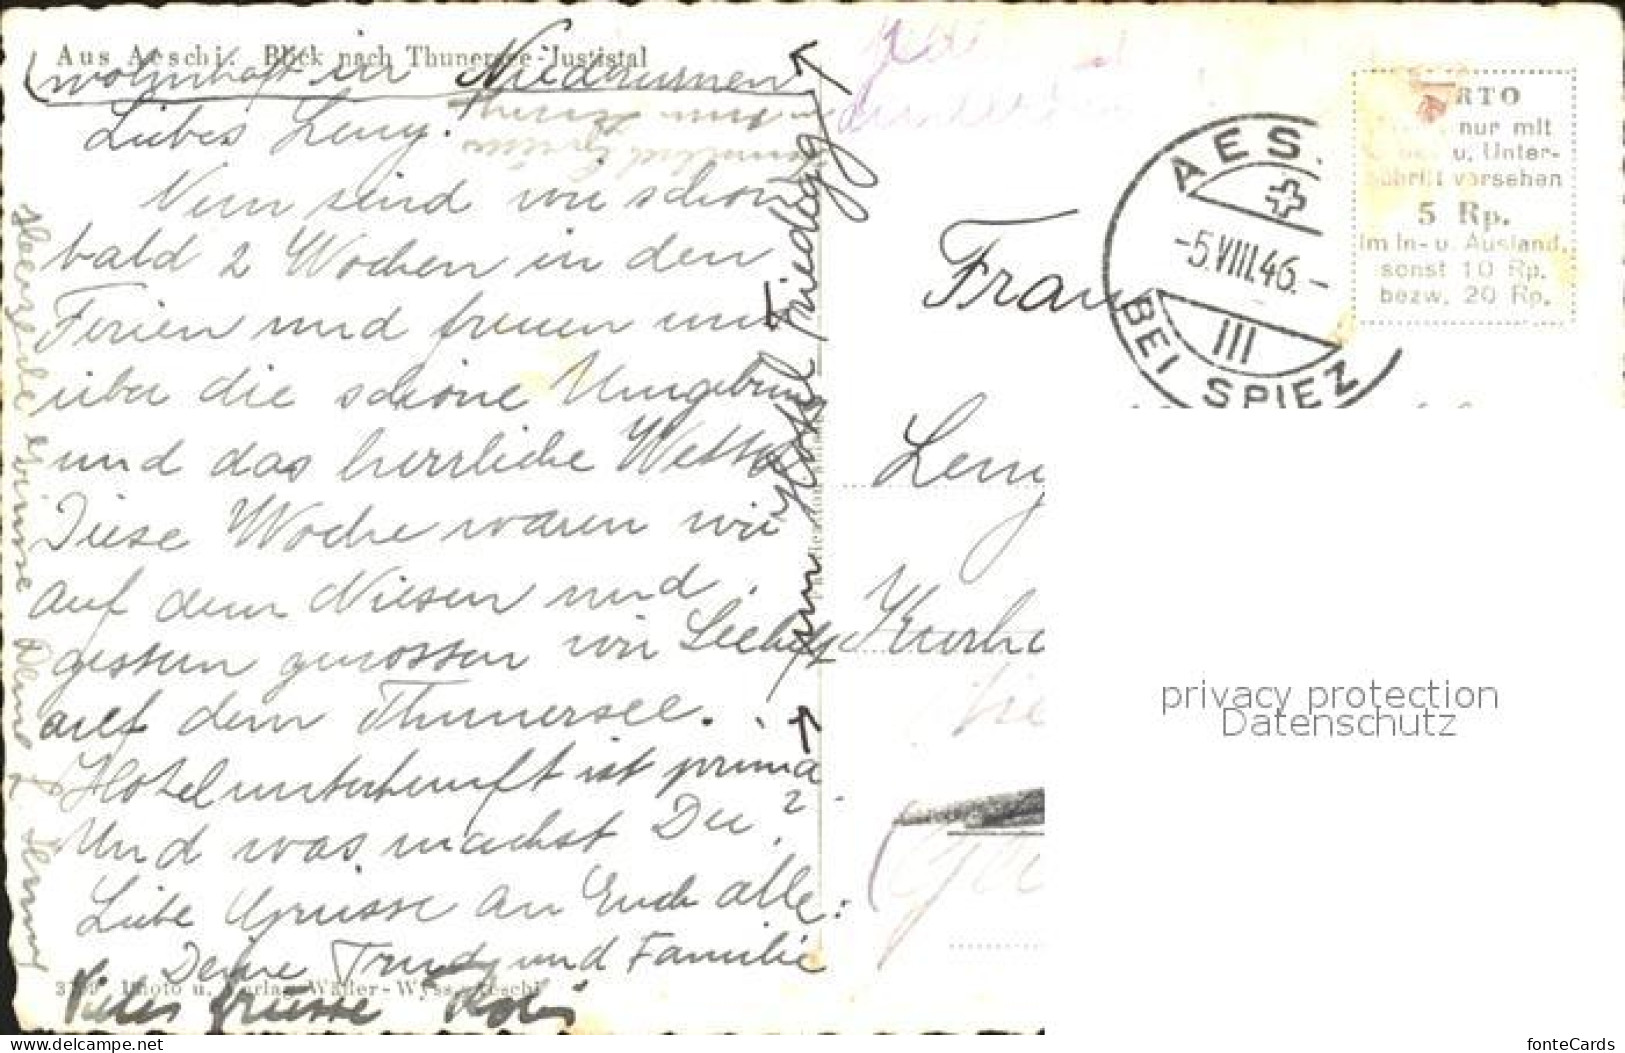 Aus Aeschi. Blick nach Thunersee-Justistal
wohnhaft in Niederurnen
Liebes Leny.
Nun sind wir schon
bald 2 Wochen in den
Ferien und freuen uns
über die schöne Umgebung
und das herrliche Wetter
Diese Woche waren wir
auf dem Niesen und
gestern genossen wir
auf dem Thunersee.
Hotelunterkunft ist prima
Und was machst Du?
Liebe Grüsse an Euch alle:
Deine Trudy und Familie
Photo u. Verlag Wäfler-Wyss, Aeschi
Viele Grüsse
zum Hotel Friedegg
Frau
Leny
AES
-5.VIII.46.-
III
BEI SPIEZ
RTO
nur mit
u. Unter-
schrift versehen
5 Rp.
im In- u. Ausland,
sonst 10 Rp.
bezw. 20 Rp.
privacy protection
Datenschutz
www.delcampe.net
fonteCards